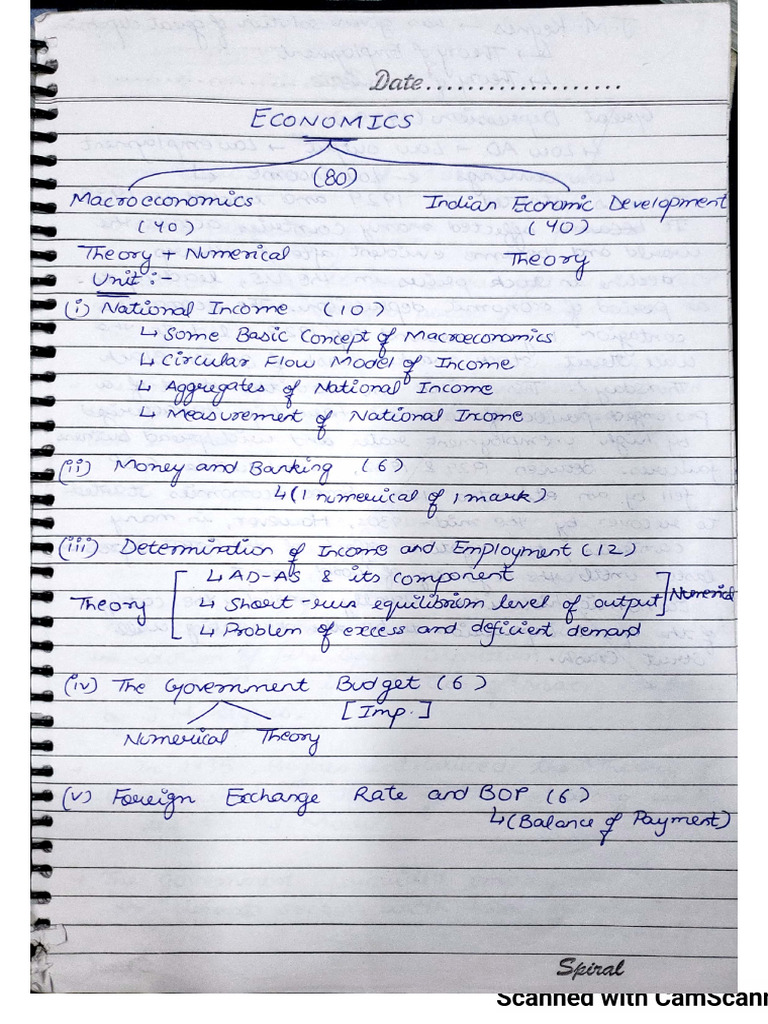 Date....................
ECONOMICS
(80)
Macroeconomics Indian Economic Development
(40) (40)
Theory + Numerical Theory
Unit :-
(i) National Income (10)
↳ Some Basic Concept of Macroeconomics
↳ Circular Flow Model of Income
↳ Aggregates of National Income
↳ Measurement of National Income
(ii) Money and Banking (6)
↳ (1 numerical of 1 mark)
(iii) Determination of Income and Employment (12)
↳ AD-AS & its component
Theory ↳ Short-run equilibrium level of output Numerical
↳ Problem of excess and deficient demand
(iv) The Government Budget (6)
[Imp.]
Numerical Theory
(v) Foreign Exchange Rate and BOP (6)
↳ (Balance of Payment)
Spiral
Scanned with CamScann